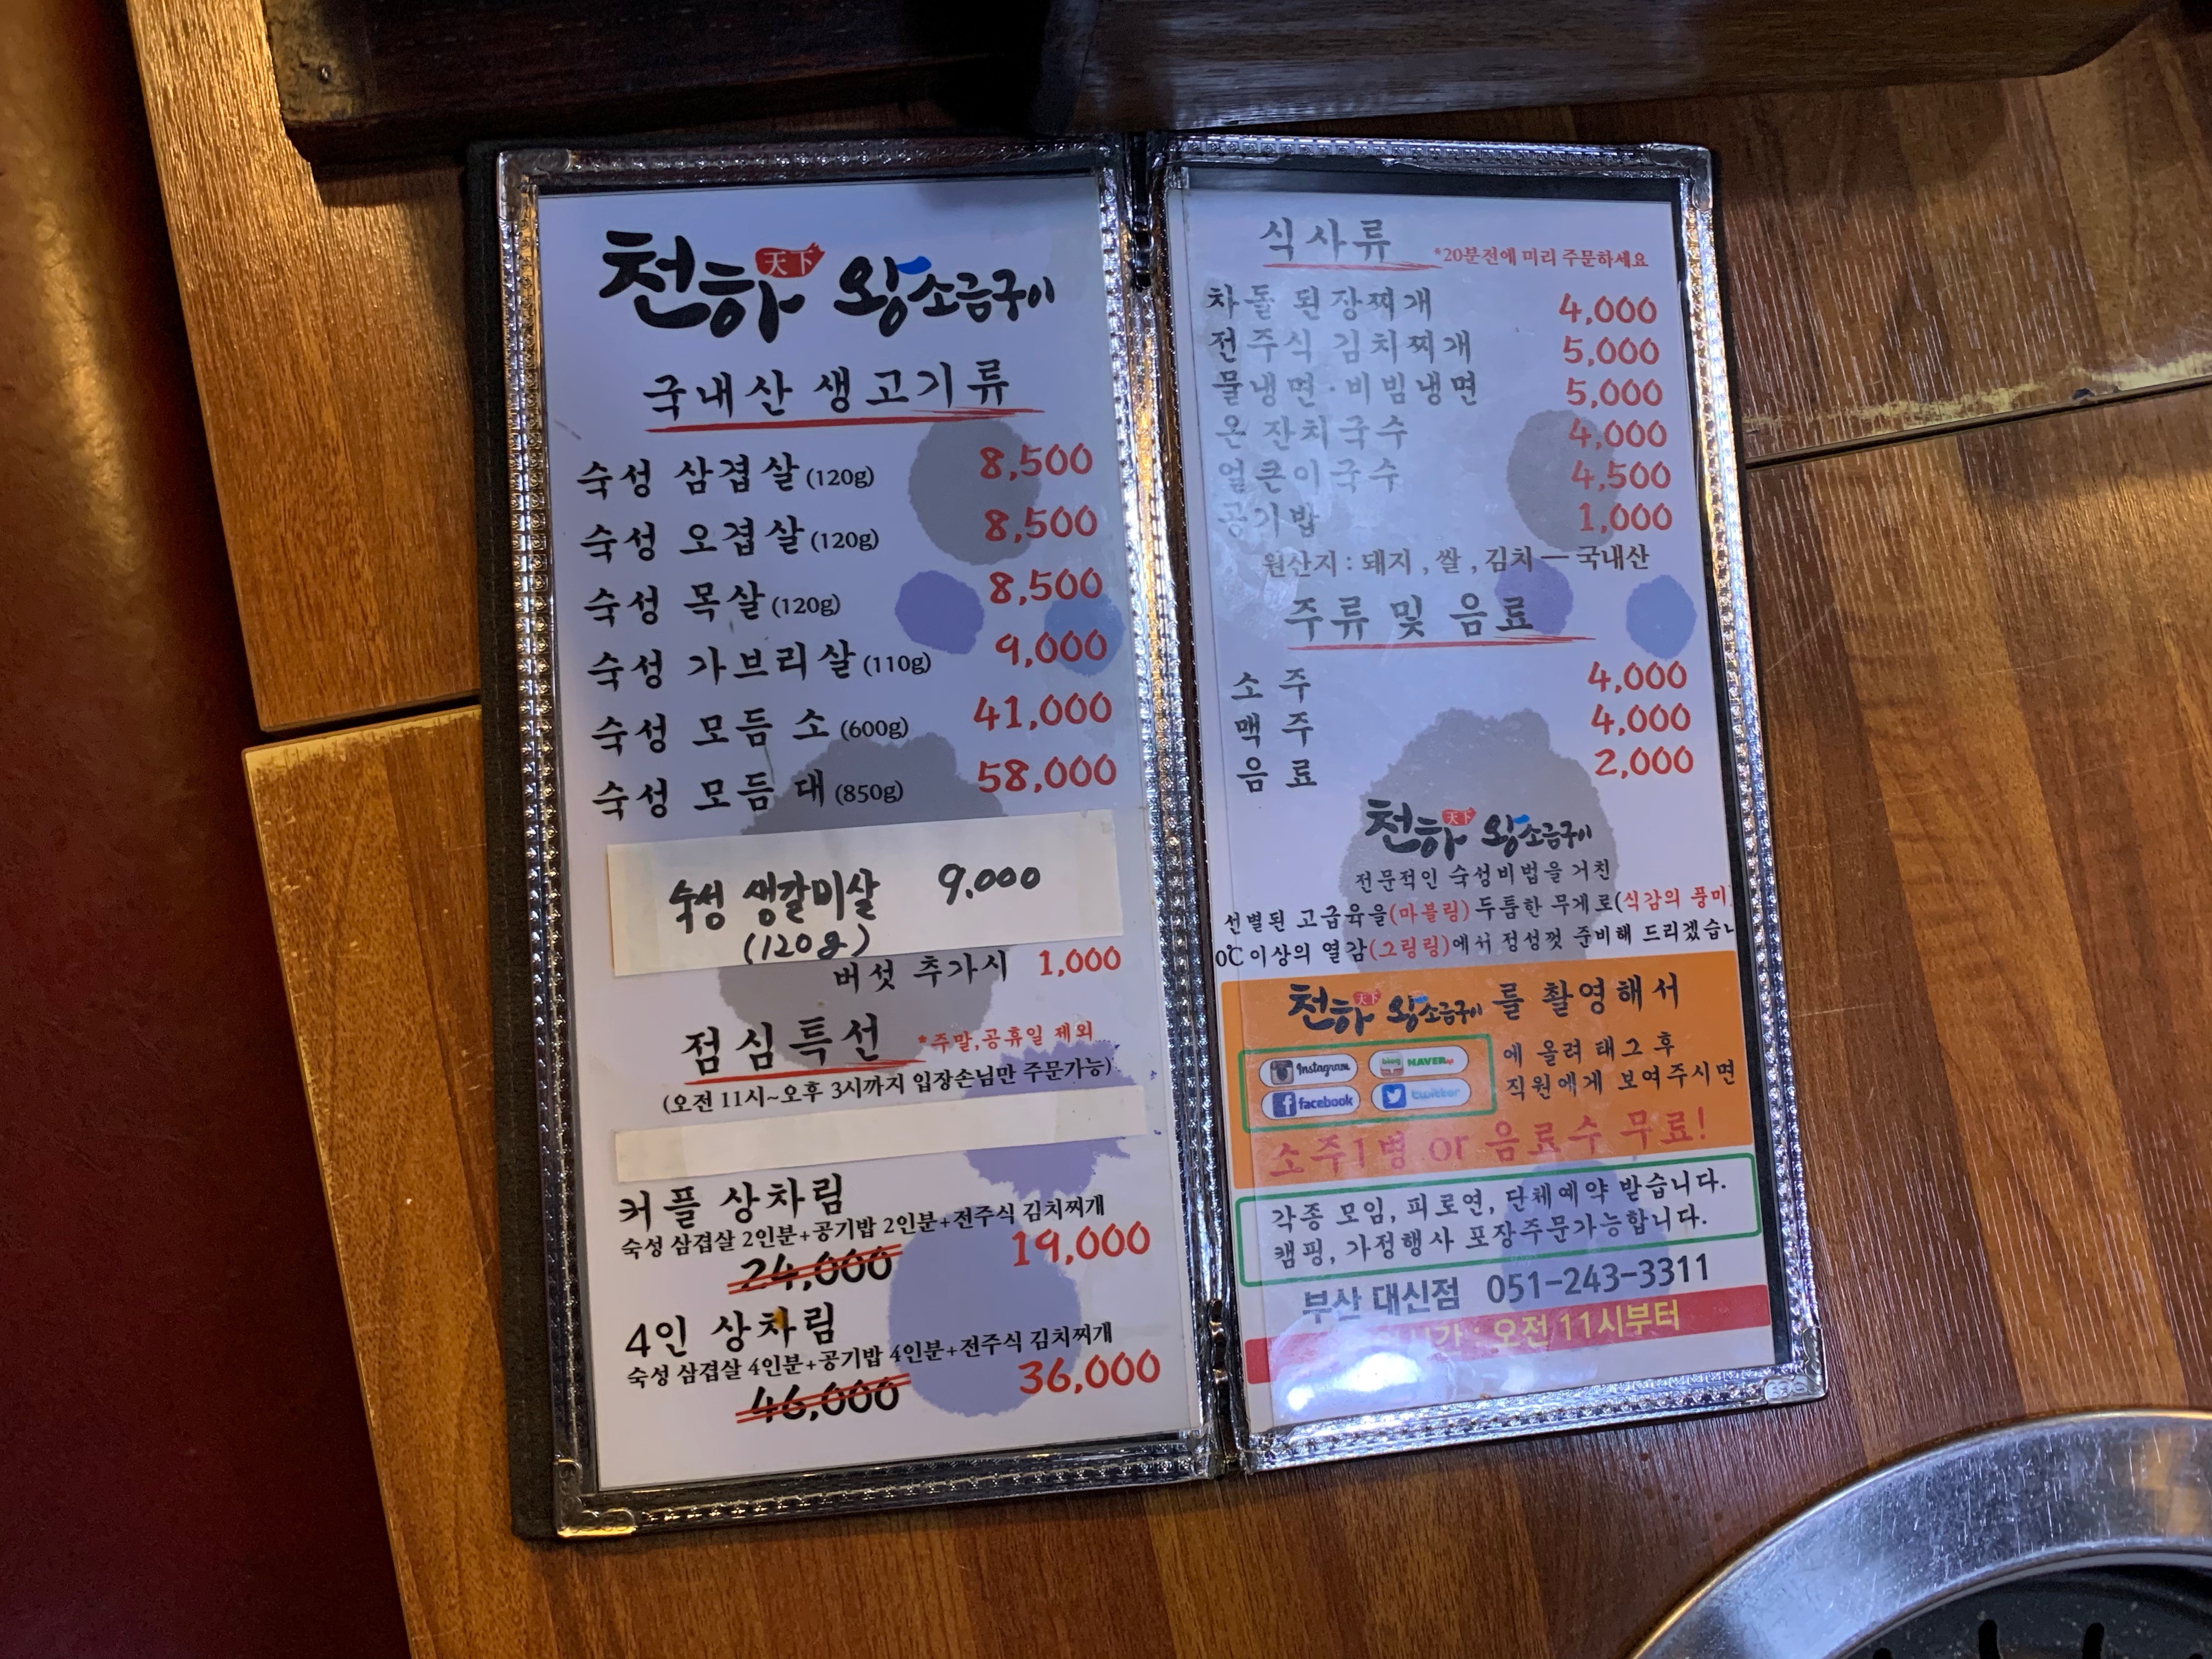 천하 天下 왕소금구이
국내산 생고기류
숙성 삼겹살 (120g) 8,500
숙성 오겹살 (120g) 8,500
숙성 목살 (120g) 8,500
숙성 가브리살 (110g) 9,000
숙성 모듬 소 (600g) 41,000
숙성 모듬 대 (850g) 58,000
숙성 생갈미살 9,000
(120g)
버섯 추가시 1,000
점심특선 *주말,공휴일 제외
(오전 11시~오후 3시까지 입장손님만 주문가능)
커플 상차림
숙성 삼겹살 2인분+공기밥 2인분+전주식 김치찌개
24,000 19,000
4인 상차림
숙성 삼겹살 4인분+공기밥 4인분+전주식 김치찌개
46,000 36,000
식사류 *20분전에 미리 주문하세요
차돌 된장찌개 4,000
전주식 김치찌개 5,000
물냉면·비빔냉면 5,000
온 잔치국수 4,000
얼큰이국수 4,500
공기밥 1,000
원산지 : 돼지 , 쌀 , 김치 — 국내산
주류 및 음료
소주 4,000
맥주 4,000
음료 2,000
천하 天下 왕소금구이
전문적인 숙성비법을 거친
선별된 고급육을(마블링) 두툼한 무게로(식감의 풍미)
0℃이상의 열감(그링링)에서 정성껏 준비해 드리겠습니
천하 天下 왕소금구이를 촬영해서
Instagram blog NAVER 에 올려 태그 후
facebook twitter 직원에게 보여주시면
소주1병 or 음료수 무료!
각종 모임, 피로연, 단체예약 받습니다.
캠핑, 가정행사 포장주문가능합니다.
부산 대신점 051-243-3311
시간 : 오전 11시부터